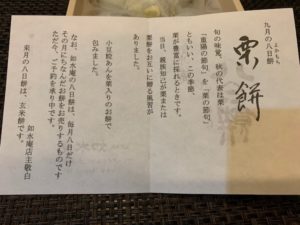 九月の八日餅
栗餅
旬の味覚、秋の代表は栗
「重陽の節句」を「栗の節句」
ともいい、この季節、
栗が豊富に採れるときです。
当日、親族知己が栗または
栗餅をお互いに贈る風習が
ありました。
小豆餡あんを栗入りのお餅で
包みました。
なお、如水庵の八日餅は、毎月八日だけ
その月にちなんだお餅をお売りするものです
ただ今、ご予約を承り中です。
如水庵店主敬白
来月の八日餅は、玄米餅です。